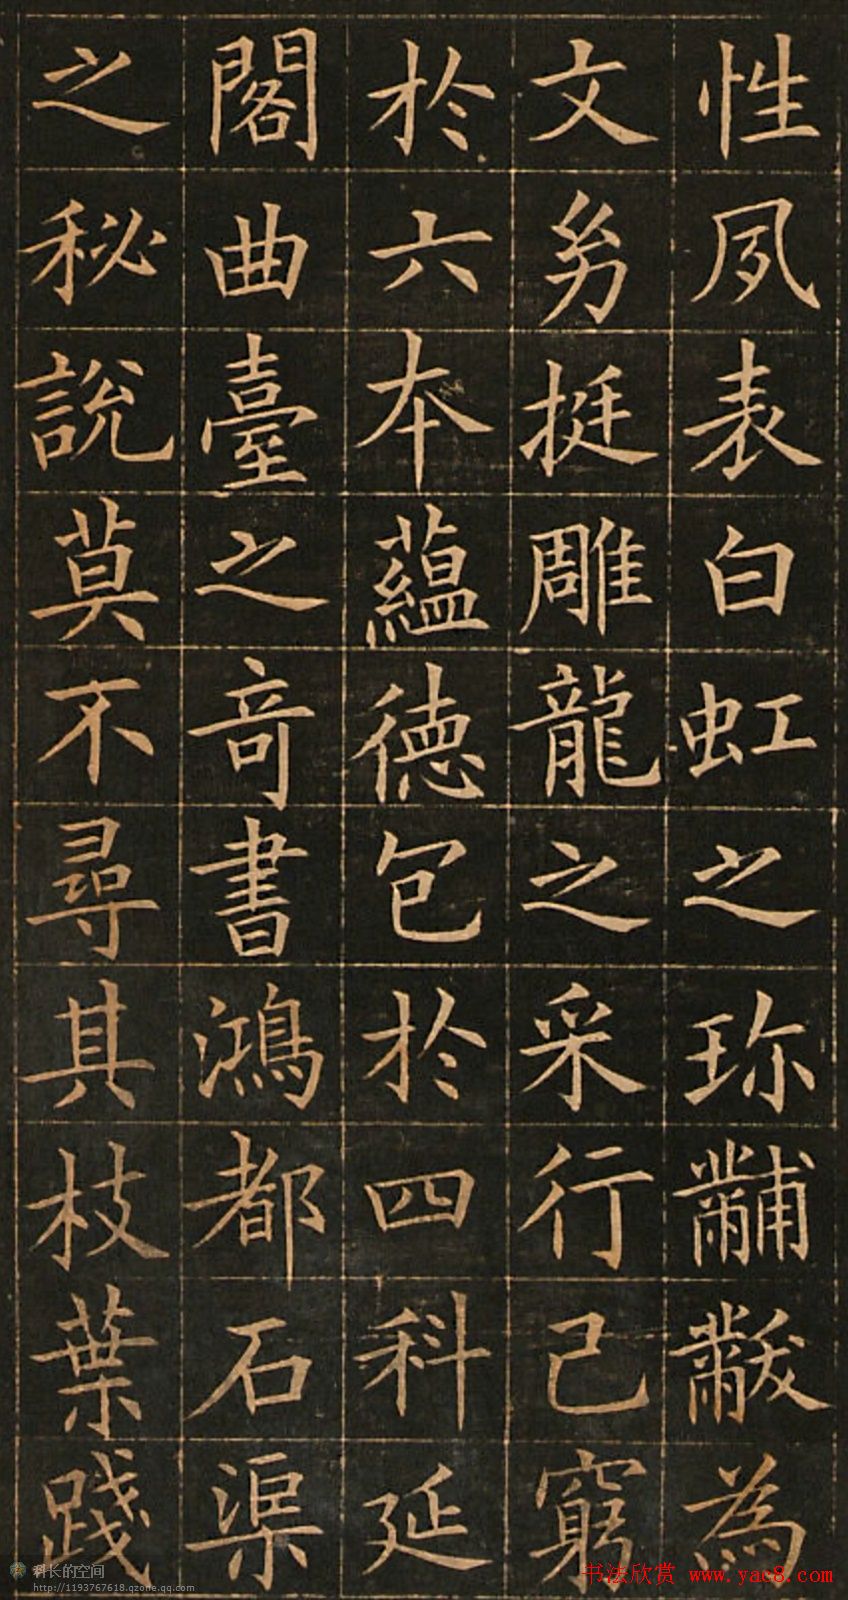 性夙表白虹之珎黼黻為
文𠡠挺雕龍之采行己窮
於六本蘊德包於四科延
閣曲臺之竒書鴻都石渠
之秘説莫不尋其枝葉踐
科长的空间
http://1193767618.qzone.qq.com
书法欣赏 www.yac8.com